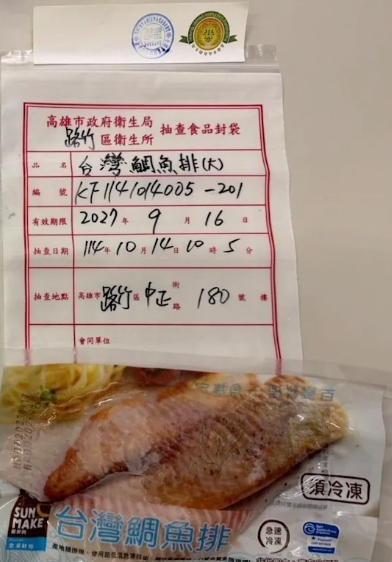 高雄市政府衛生局
路竹區衛生所 抽查食品封袋
品名 台灣鯛魚排(大)
編號 KF1141014005-201
有效期限 2027年9月16日
抽查日期 114年10月14日10時5分
抽查地點 高雄市路竹區中正街路180號樓
會同單位
須冷凍
SUN MAKE
台灣鯛魚排
急速冷凍